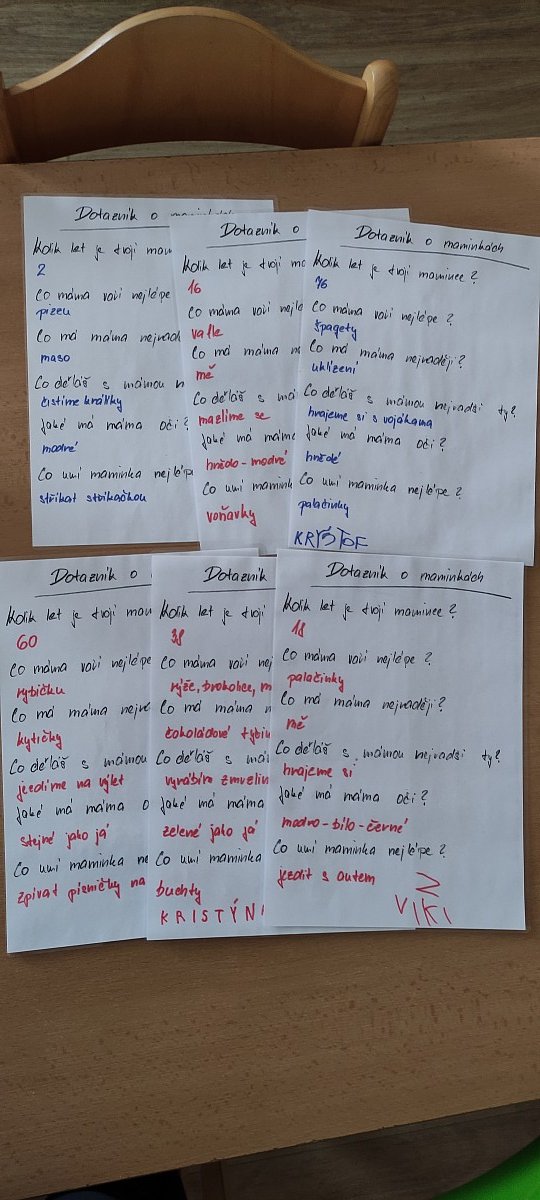 Dotazník o maminkách
Kolik let je tvojí mam
2
Co máma vaří nejlépe
pizzu
Co má máma nejradě
maso
Co děláš s mámou n
čistíme králíky
Jaké má máma oči?
modré
Co umí maminka nejlépe
stříkat stříkačkou
Dotazník o
Kolik let je tvojí ma
16
Co máma vaří nejlé
vafle
Co má máma n
mě
Co děláš s má
mazlíme se
Jaké má mám
hnědo-modré
Co umí mamink
voňavky
Dotazník o maminkách
Kolik let je tvojí mamince?
76
Co máma vaří nejlépe?
špagety
Co má máma nejraději?
uklízení
Co děláš s mámou nejradši ty?
hrajeme si s vojákama
Jaké má máma oči?
hnědé
Co umí maminka nejlépe?
palačinky
KRYŠTOF
Dotazník o
Kolik let je tvojí mam
60
Co máma vaří nejlépe
rybičku
Co má máma nejra
kytičky
Co děláš s mámou
jezdíme na výlet
Jaké má máma o
stejné jako já
Co umí maminka ne
zpívat písničky na
Dotazník
Kolik let je tvojí
38
Co máma vaří nej
rýže, brokolice, m
Co má máma n
čokoládové tyčin
Co děláš s má
vyrábím zmrzlin
Jaké má máma
zelené jako já
Co umí maminka
buchty
KRISTÝN
Dotazník o maminkách
Kolik let je tvojí mamince?
18
Co máma vaří nejlépe?
palačinky
Co má máma nejraději?
mě
Co děláš s mámou nejradši ty?
hrajeme si
Jaké má máma oči?
modro-bílo-černé
Co umí maminka nejlépe?
jezdit s autem
VIKI